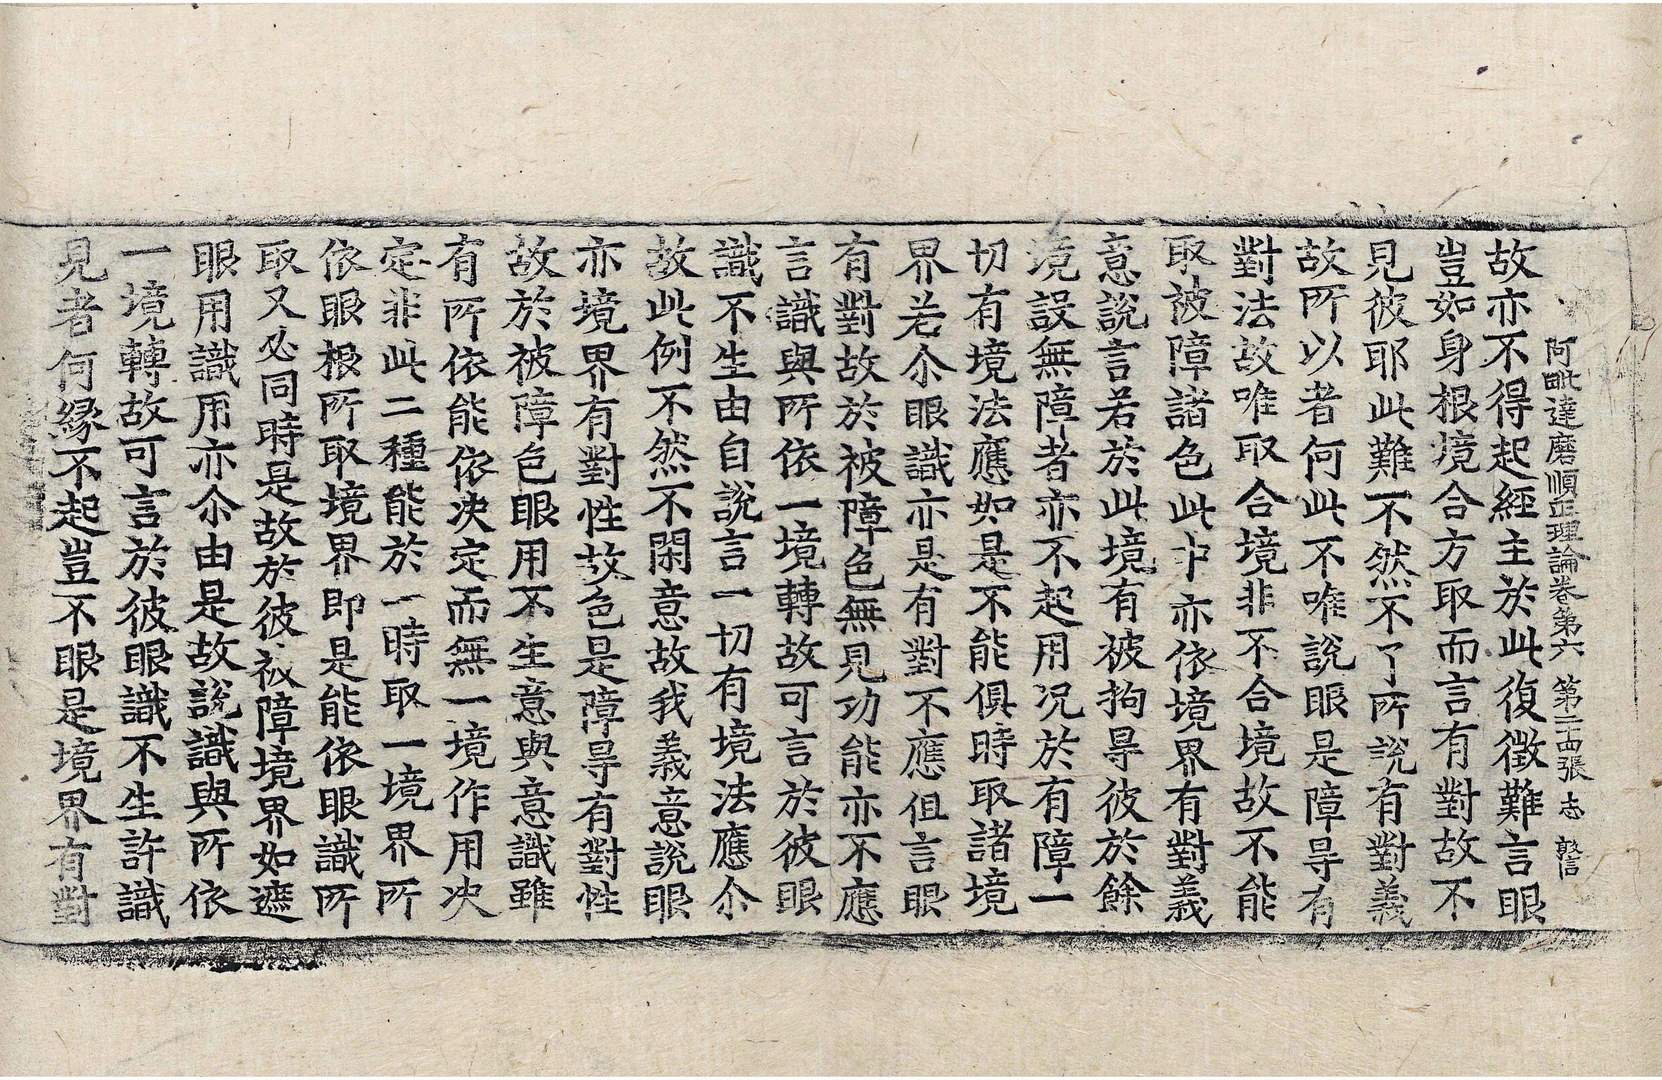 阿毗達磨順正理論卷第六 第二十四張 志 敦信
故亦不得起經主於此復徵難言眼
豈如身根境合方取而言有對故不
見彼耶此難不然不了所說有對義
故所以者何此不唯說眼是障㝵有
對法故唯取合境非不合境故不能
取被障諸色此中亦依境界有對義
意說言若於此境有被拘㝵彼於餘
境設無障者亦不起用况於有障一
切有境法應如是不能俱時取諸境
界若尒眼識亦是有對不應但言眼
有對故於被障色無見功能亦不應
言識與所依一境轉故可言於彼眼
識不生由自說言一切有境法應尒
故此例不然不閑意故我義意說眼
亦境界有對性故色是障㝵有對性
故於被障色眼用不生意與意識雖
有所依能依决定而無一境作用决
定非此二種能於一時取一境界所
依眼根所取境界即是能依眼識所
取又必同時是故於彼被障境界如遮
眼用識用亦尒由是故說識與所依
一境轉故可言於彼眼識不生許識
見者何緣不起豈不眼是境界有對